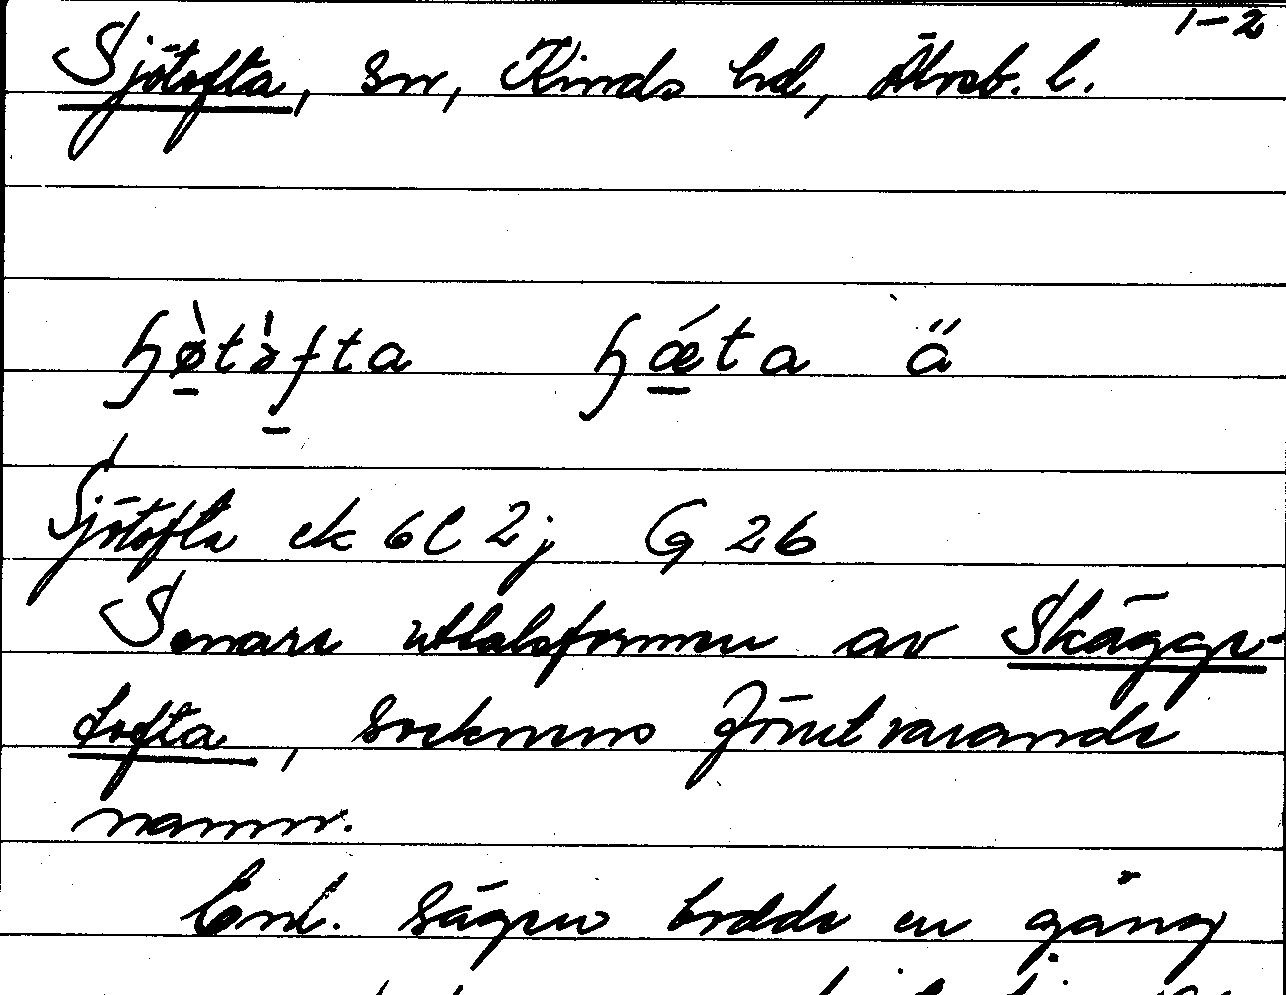 1-2
Sjötofta, sn, Kinds hd, Älvsb. l.
hæta ä
Sjötofta ek 6C 2j G 26
Senare uttalsformen av Skäggs-
tofta, socknens förutvarande
namn.
Enl. sägen bodde en gång